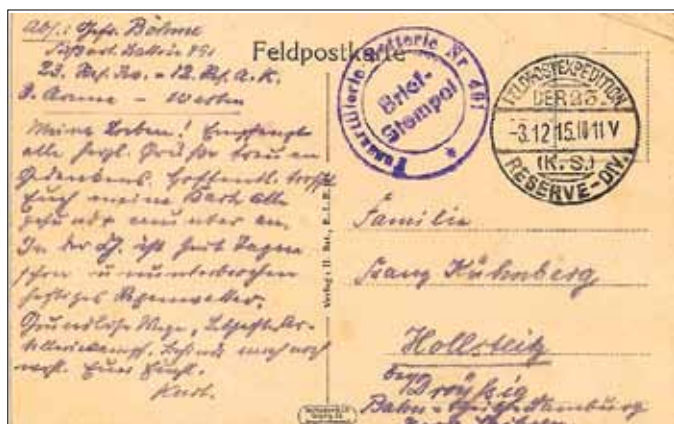 Feldpostkarte
Abs.: Gefr. Böhme
Fußart. Batterie 491
23. Res. Div. - 12. Res. A. K.
3. Armee - Westen
Meine Lieben! Empfangt
alle herzl. Grüße treuen
Gedenkens. Hoffentl. trifft
Euch meine Karte alle
gesund u. munter an.
In der Ch. ist seit Tagen
schon ununterbrochen
heftiges Regenwetter.
Grundlose Wege, Lebhafter Ar-
tilleriekampf. Befinde mich noch
wohl. Euer
Kurt.
Fussartillerie Batterie Nr 491
Brief-
Stempel
FELDPOSTEXPEDITION
DER 23.
-3.12 15. 11 V
(K. S.)
RESERVE-DIV.
Familie
Franz Kühnberg,
Hollsteitz
bei Droyßig
Bahn